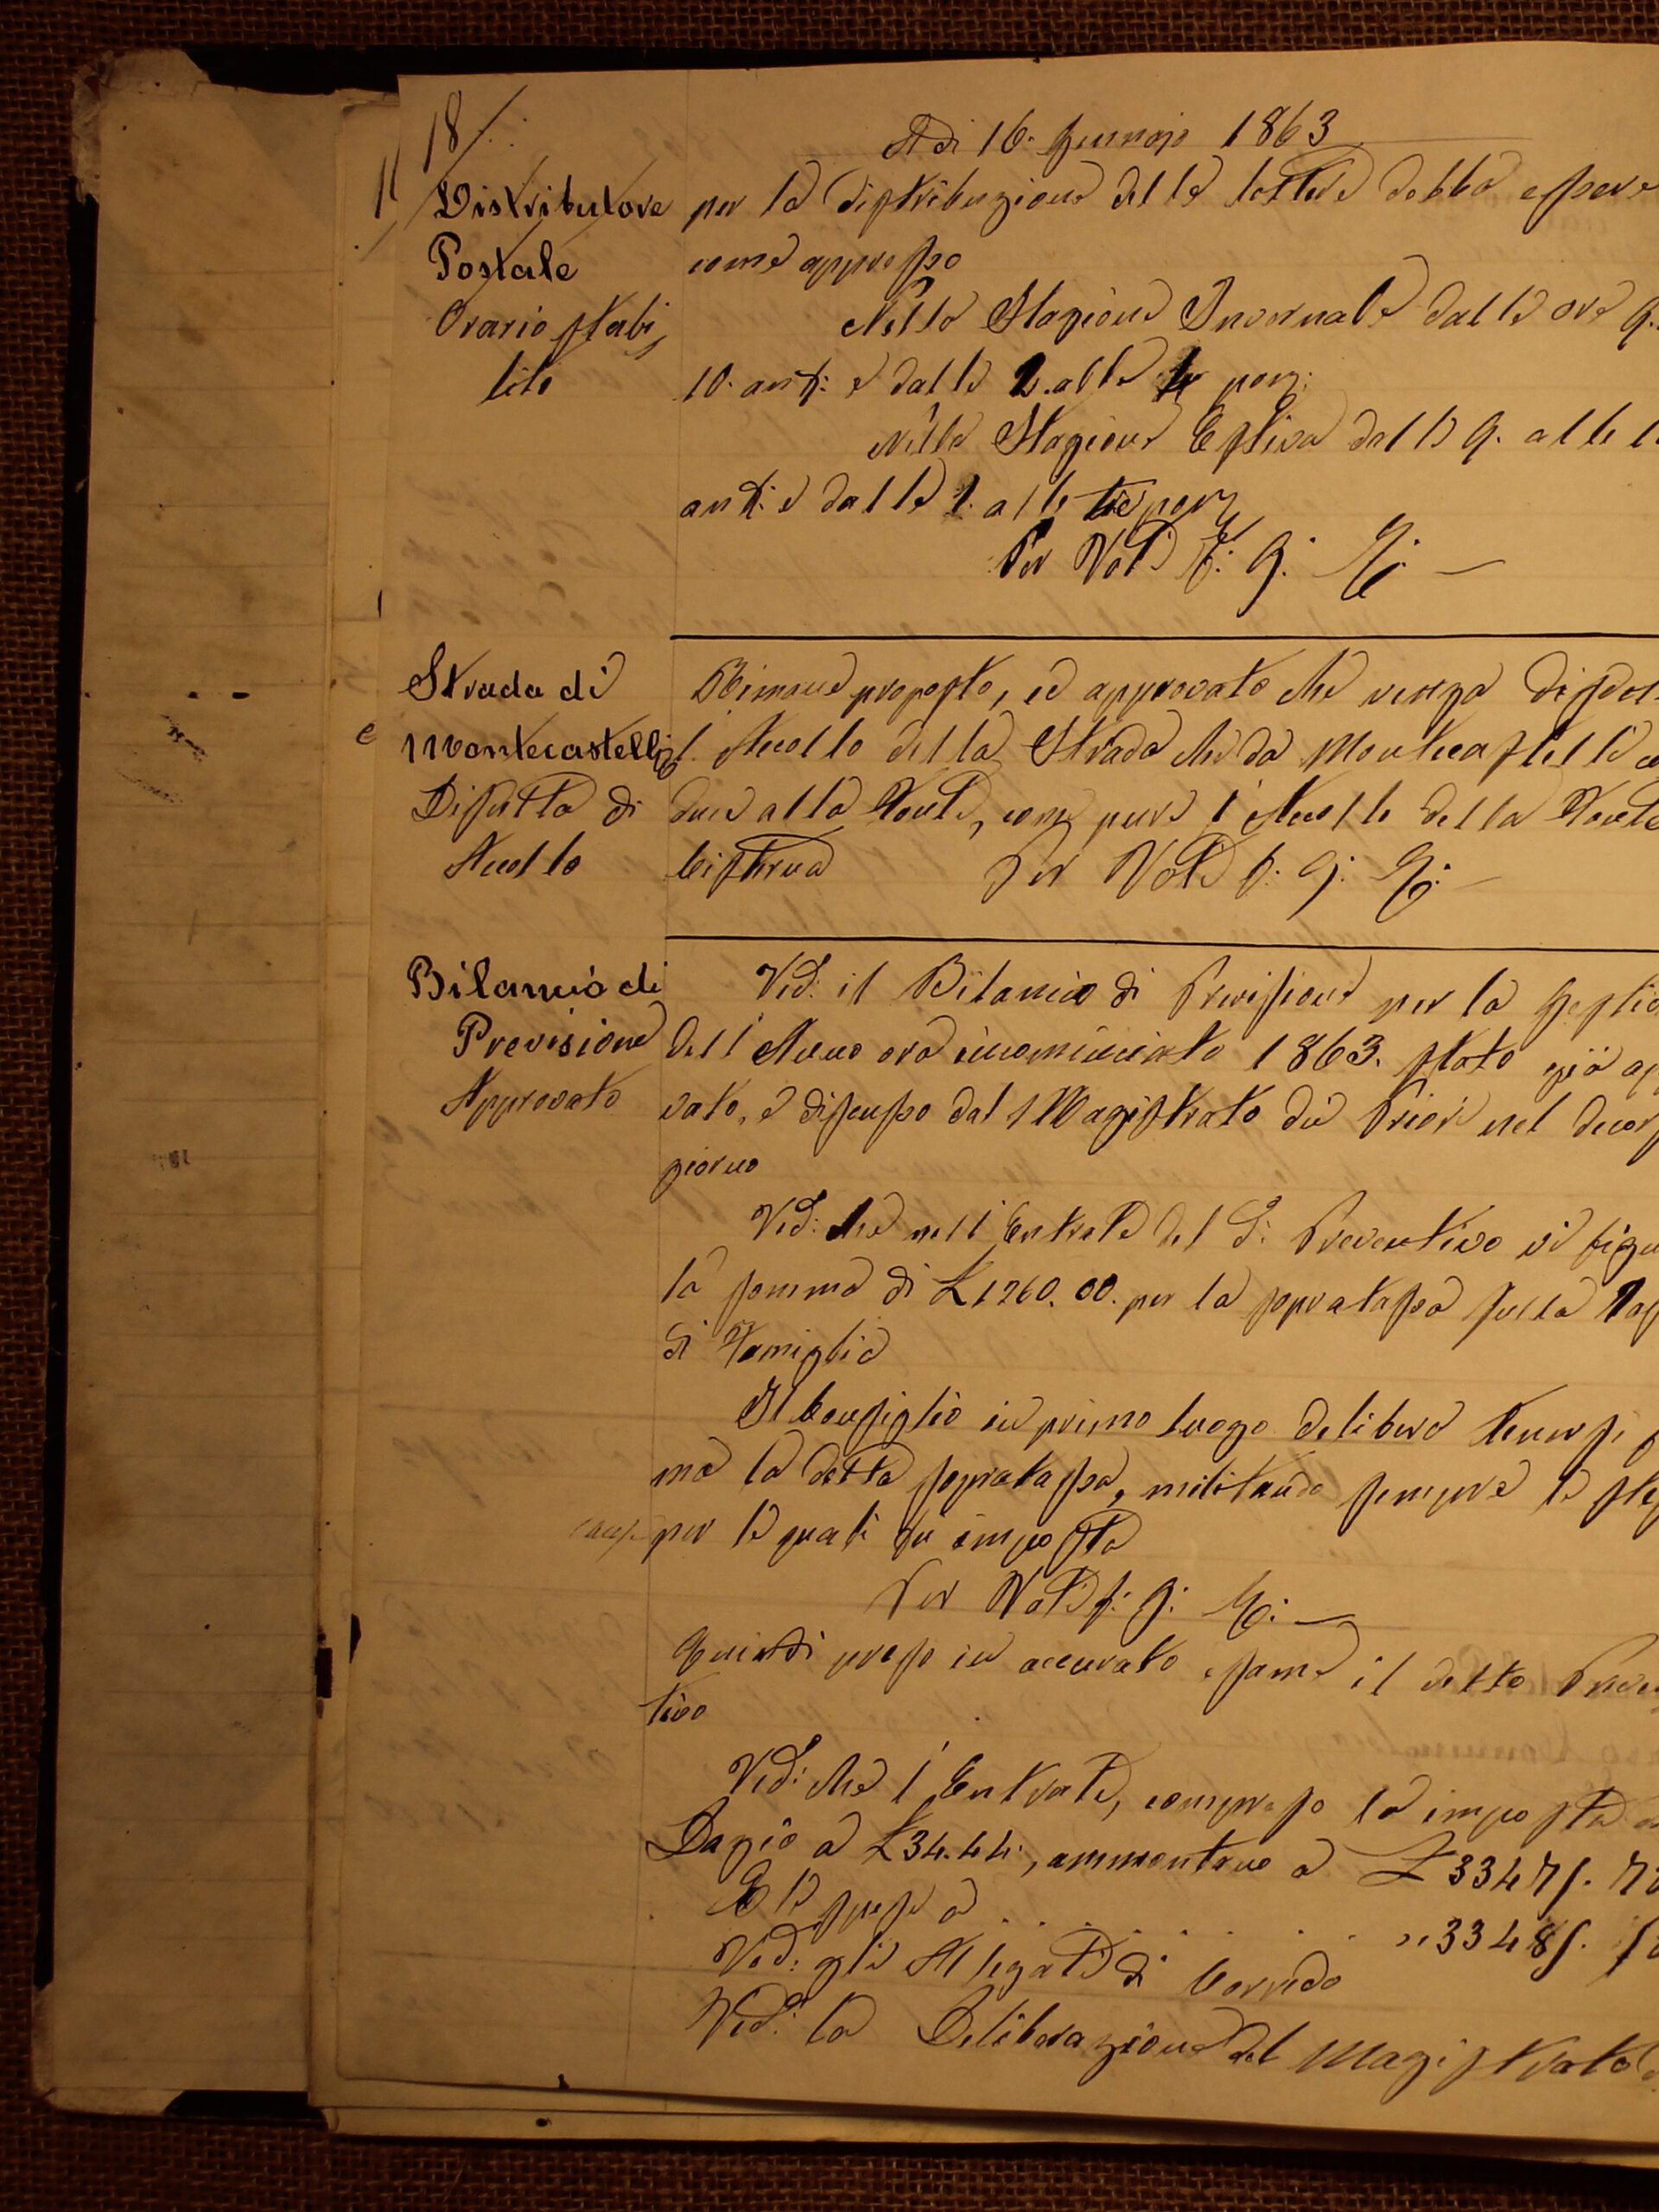 18
Adì 16. Gennajo 1863
Distributore
Postale
Orario stabi
lito
per la distribuzione delle lettere debba essere
come appresso
Nella Stagione Invernale dalle ore 9.
10. ant: e dalle 2. alle pom:
Nella Stagione Estiva dalle 9. alle
ant: e dalle alle pom:
Per Voti f: 9:
Strada di
Montecastelli
Disfatta di
Accollo
Rimane proposto, ed approvato che venga
l'Accollo della Strada che da Montecastelli
duce alla Fonte, come pure l'Accollo della Fonte
Cisterna Per Voti f: 9:
Bilancio di
Previsione
Approvato
Ved: il Bilancio di Previsione per la Gestio
dell'Anno ora incominciato 1863. stato già ap
vato, e discusso dal Magistrato dei Priori nel decor
giorno
Ved: che nell'Entrate del S: Preventivo vi figu
la somma di £1260.00. per la sopratassa sulla Tas
di Famiglia
Il Consiglio in primo luogo deliberò tenersi
ma la detta sopratassa, militando sempre le ste
cause per le quali fu imposta
Per Voti f: 9:
Quindi preso in accurato esame il detto Preven
tivo
Ved: che l'Entrate, compreso la imposta
Dazio a £34.44:, ammontano a £ 33475. 7
E le spese a . . . . . . . " 33485. 5
Ved: gli Allegati di Corredo
Ved: la Deliberazione del Magistrato